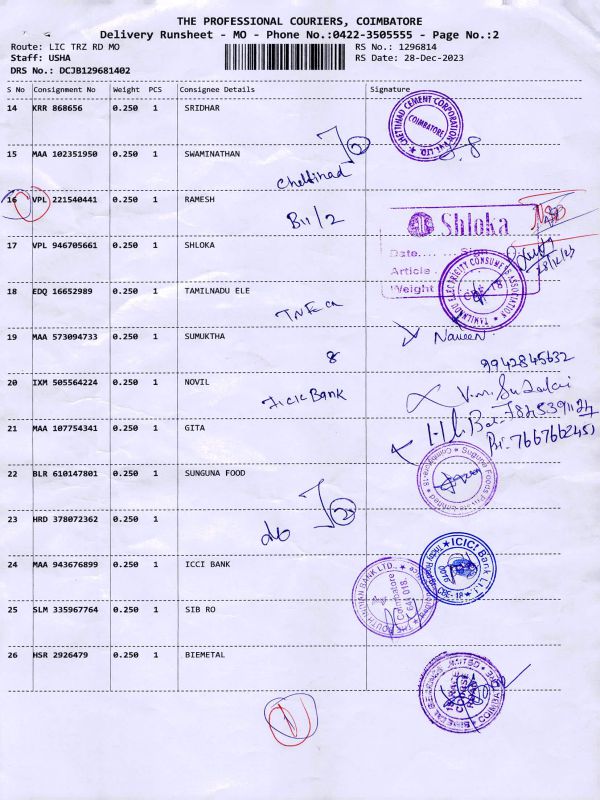 THE PROFESSIONAL COURIERS, COIMBATORE
Delivery Runsheet - MO - Phone No.:0422-3505555 - Page No.:2
Route: LIC TRZ RD MO
RS No.: 1296814
Staff: USHA
RS Date: 28-Dec-2023
DRS No.: DCJB129681402
S No Consignment No Weight PCS Consignee Details Signature
14 KRR 868656 0.250 1 SRIDHAR
CHETTINAD CEMENT CORPORATION PVT. LTD. COIMBATORE
15 MAA 102351950 0.250 1 SWAMINATHAN
Chettinad
16 VPL 221540441 0.250 1 RAMESH
B11/2
Shloka
17 VPL 946705661 0.250 1 SHLOKA
Date.... Sign
Article
Weight
28/12/23
TAMILNADU ELECTRICITY CONSUMERS ASSOCIATION
18 EDQ 16652989 0.250 1 TAMILNADU ELE
19 MAA 573094733 0.250 1 SUMUKTHA
Naveen
8
9942845632
20 IXM 505564224 0.250 1 NOVIL
ICIC Bank
21 MAA 107754341 0.250 1 GITA
22 BLR 610147801 0.250 1 SUNGUNA FOOD
23 HRD 378072362 0.250 1
24 MAA 943676899 0.250 1 ICCI BANK
ICICI Bank Ltd.
THE SOUTH INDIAN BANK LTD.,
Coimbatore
641 018
25 SLM 335967764 0.250 1 SIB RO
26 HSR 2926479 0.250 1 BIEMETAL